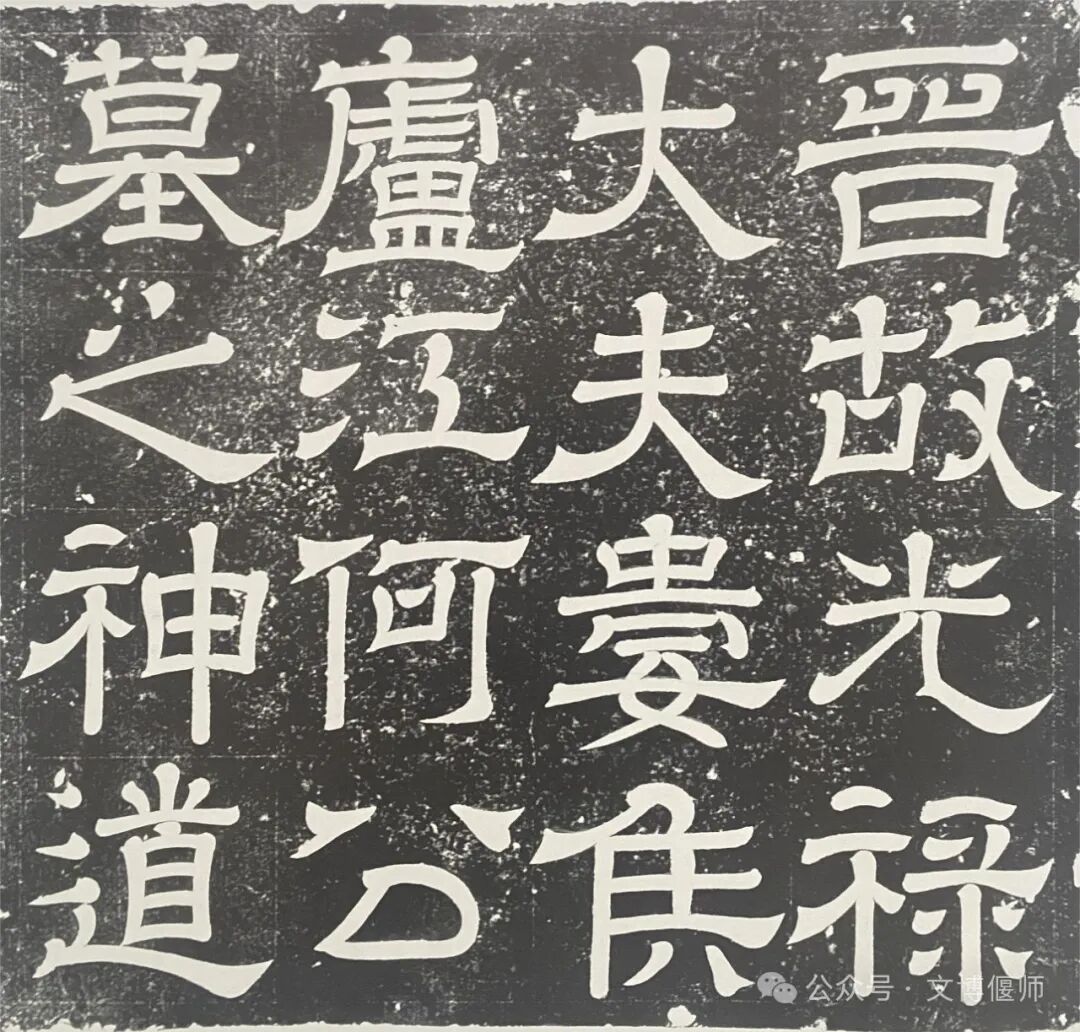 晉故光禄
大夫婁侯
廬江何公
墓之神道
公众号·文博偃师